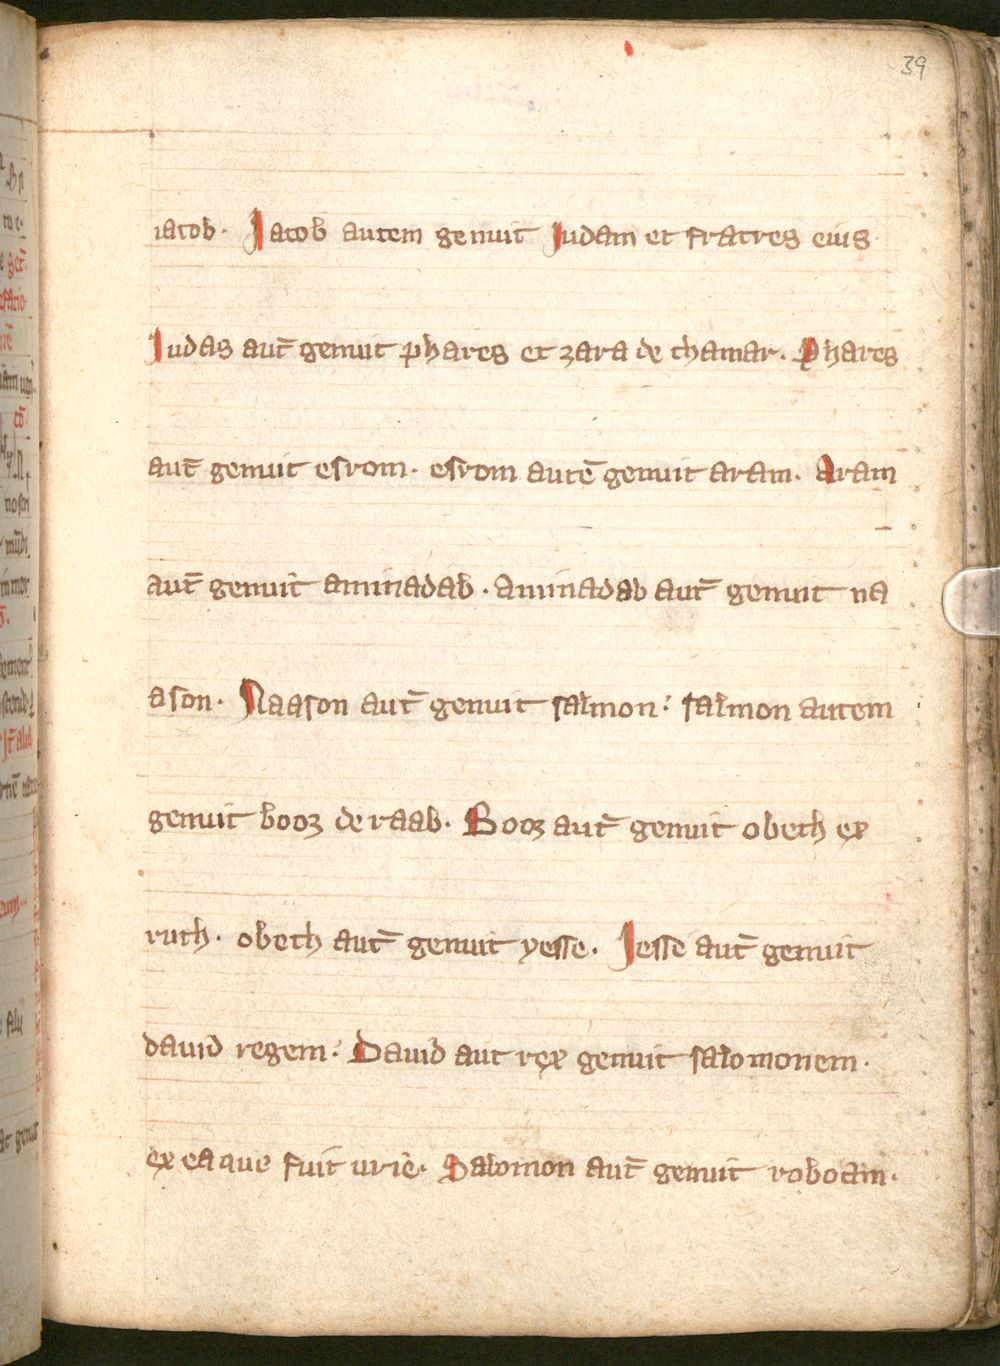 39
iacob. Iacob autem genuit Iudam et fratres eius
Iudas aut̄ genuit phares et zara de thamar. Phares
aut̄ genuit esrom. esrom autē genuit aram. Aram
aut̄ genuit aminadab. aminadab aut̄ genuit na
ason. Naason aut̄ genuit salmon. salmon autem
genuit booz de raab. Booz aut̄ genuit obeth ex
ruth. obeth aut̄ genuit yesse. Iesse aut̄ genuit
dauid regem. Dauid aut rex genuit salomonem.
ex ea que fuit urie. Salomon aut̄ genuit roboam.